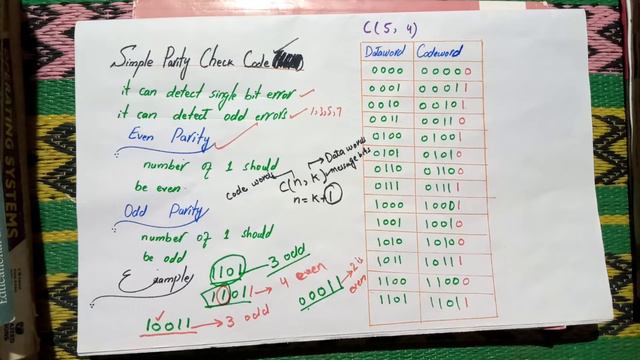 C(5, 4)
Simple Parity Check Code
it can detect single bit error ✓
it can detect odd errors ✓ 1,3,5,7
Even Parity
number of 1 should
be even
code words C(n, k) Data words
message bits
n = k+1
Odd Parity
number of 1 should
be odd
Examples
1101 → 3 odd
11011 → 4 even
10011 → 3 odd
00011 → 2 is
even
Dataword Codeword
0000 00000
0001 00011
0010 00101
0011 00110
0100 01001
0101 01010
0110 01100
0111 01111
1000 10001
1001 10010
1010 10100
1011 10111
1100 11000
1101 11011
ERATING SYSTEMS
Educational